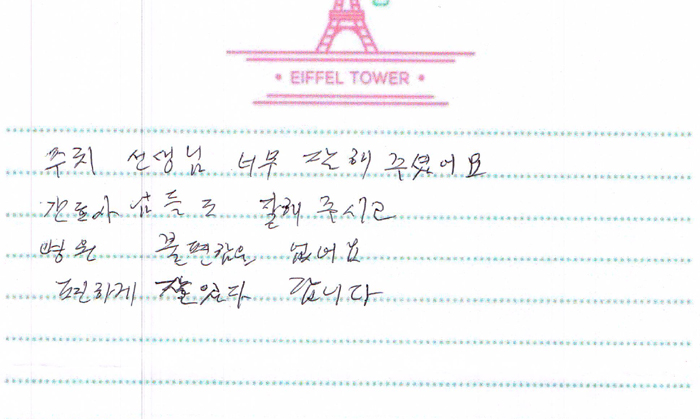 • EIFFEL TOWER •
주치 선생님 너무 잘해 주셨어요
간호사 님들도 잘해 주시고
병원 불편함은 없어요
편하게 잘있다 갑니다